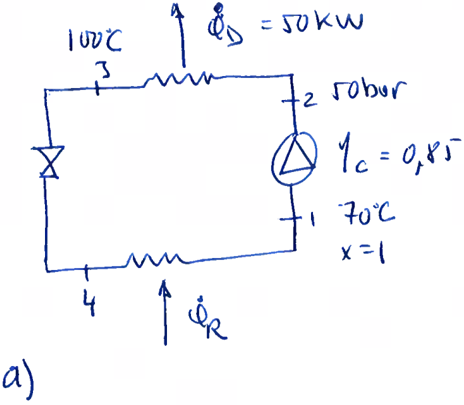 100°C
Q̇_D = 50 kW
3
2 50bar
η_c = 0,85
1 70°C
x = 1
4
Q̇_R
a)